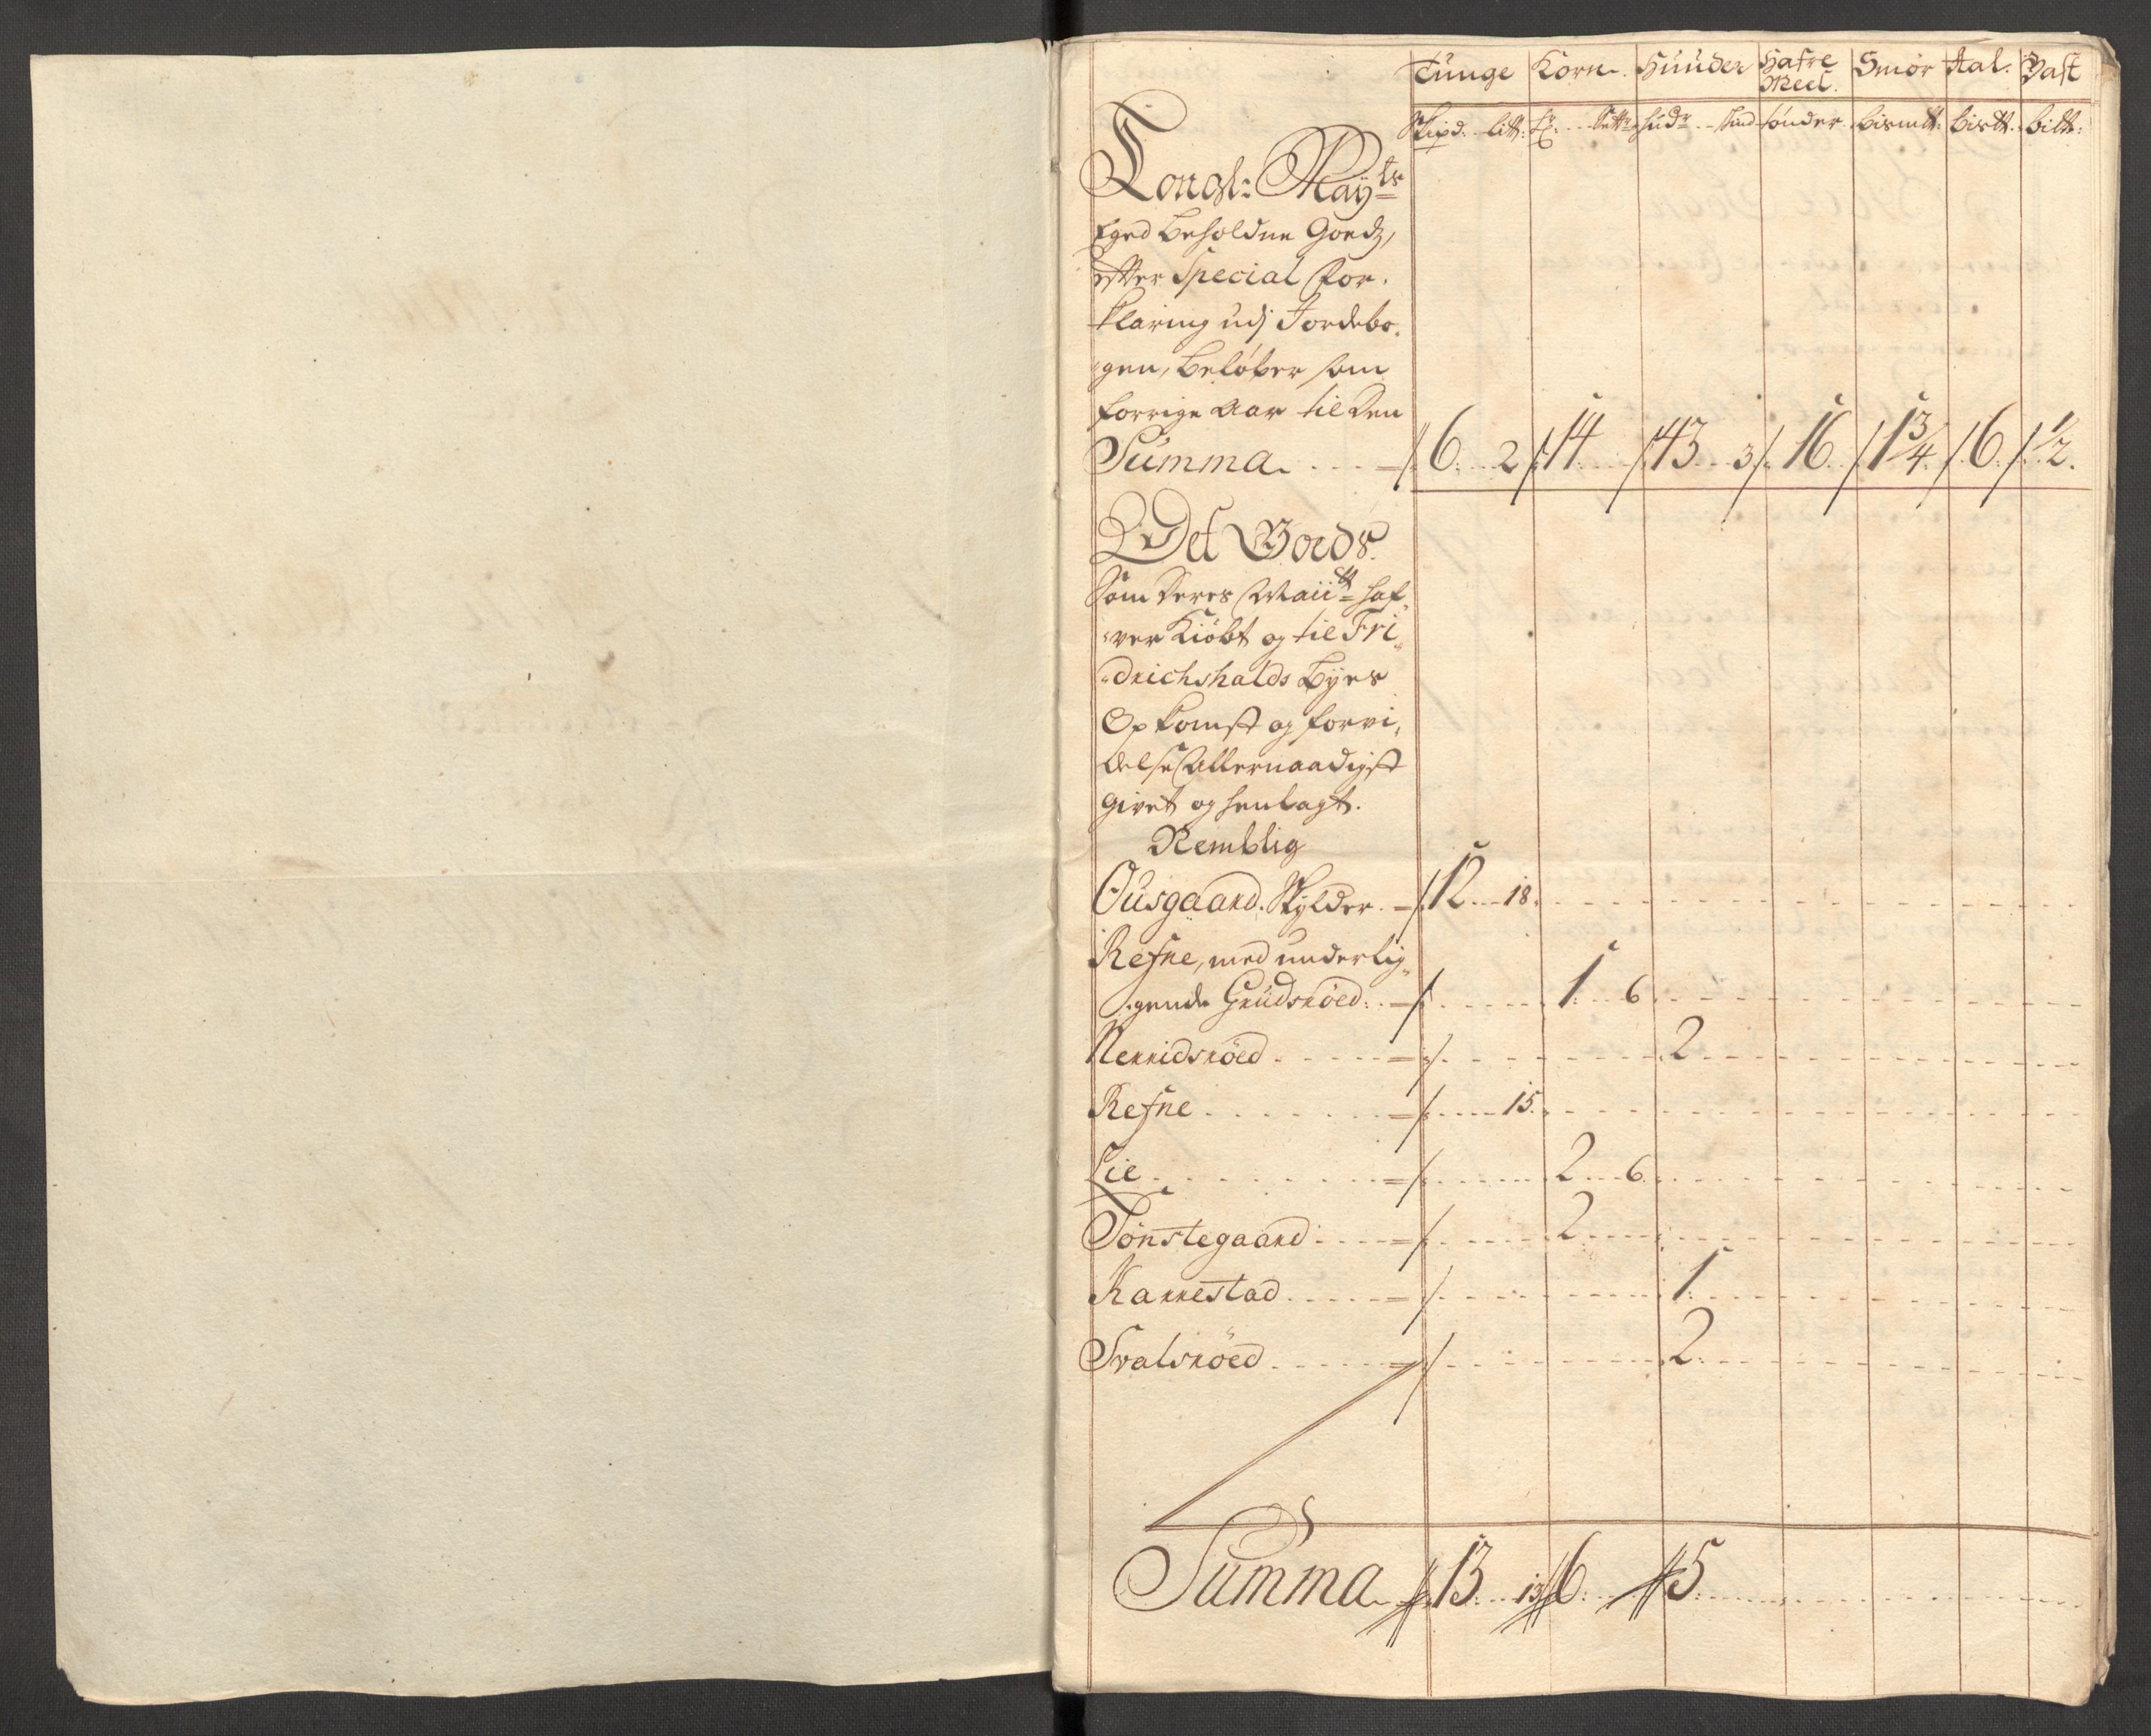 Tunge Korn. Huuder Hafre Meel. Smör Aal. Bast
Skipd. litt: Hudr Skind tönder. bismtt: bistt. bitt:
Kongl: Mayts
Eged beholdne Goedz,
efter Special For,
klaring udj Jordebo,
gen, beløber som
forrige Aar til den
Summa. 6. 2 14 43. 3 16 1 3/4 6 1/2.
Det Goeds.
Som deres Maiitt haf,
ver kiöbt og til Fri,
drichshalds Byes
Opkomst og forvi,
delse Allernaadigst
givet og henlagt.
Nemblig
Ousgaard. Skylder. 12 18.
Refne, med underlig,
gende Grudsröed: 1. 6
Nerridsröed 2
Refne 15.
Lie 2 6
Tönstegaard 2
Karrestad 1
Svalsröed 2
Summa 13 13 6 5